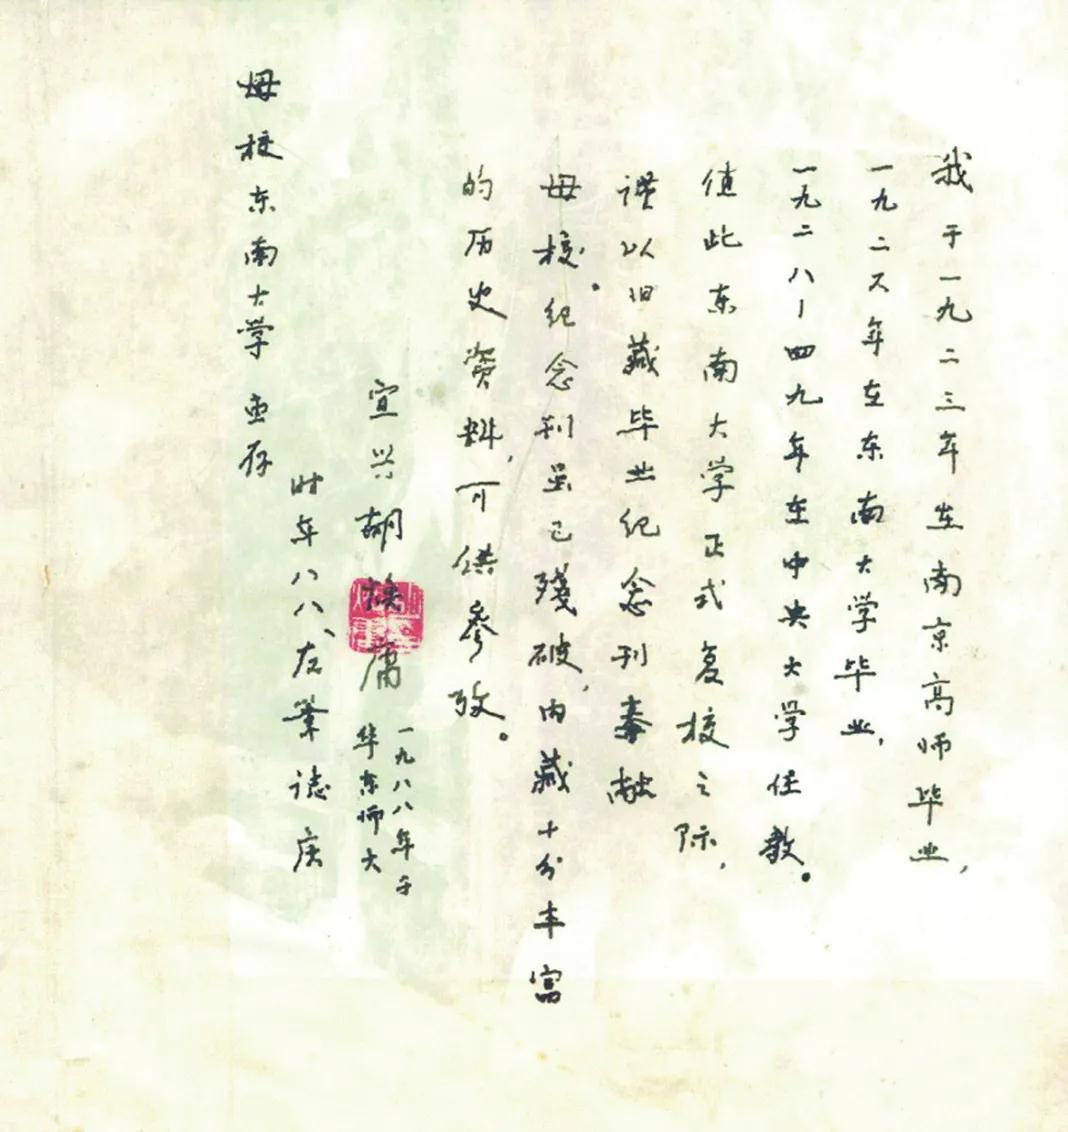 我于一九二三年在南京高师毕业，
一九二六年在东南大学毕业，
一九二八—四九年在中央大学任教。
值此东南大学正式复校之际，
谨以旧藏毕业纪念刊奉献
母校。纪念刊虽已殘破，内藏十分丰富
的历史资料，可供参攷。
宜兴胡焕庸
一九八八年于
华东师大
时年八八、左筆誌庆
母校东南大学 惠存